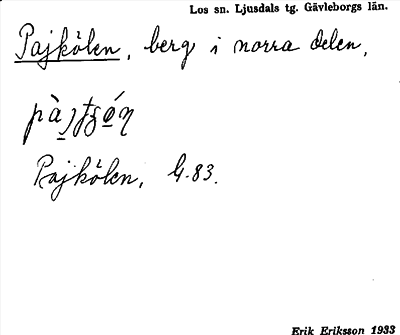 Los sn. Ljusdals tg. Gävleborgs län.
Pajkölen, berg i norra delen,
Pajkölen, G.83.
Erik Eriksson 1933